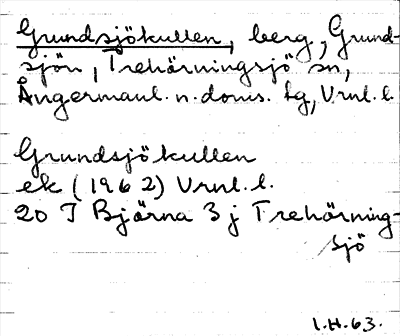 Grundsjökullen, berg, Grund-
sjön, Trehörningsjö sn,
Ångermanl. n. doms. tg, Vrnl. l.
Grundsjökullen
ek (1962) Vrnl. l.
20 I Björna 3 j Trehörning-
sjö
I.H.63.